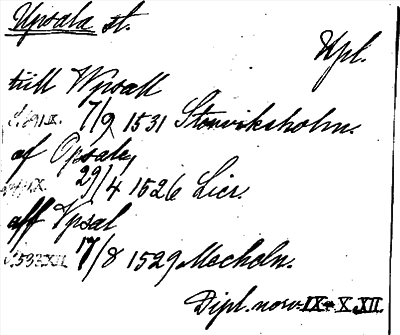 Upsala st.
Upl.
till Wpsall
7/9 1531 Storviksholm.
af Opsala,
29/4 1526 Lier.
aff Vpsal
17/8 1529 Mocholn.
Dipl. norv. IX - X, XII.